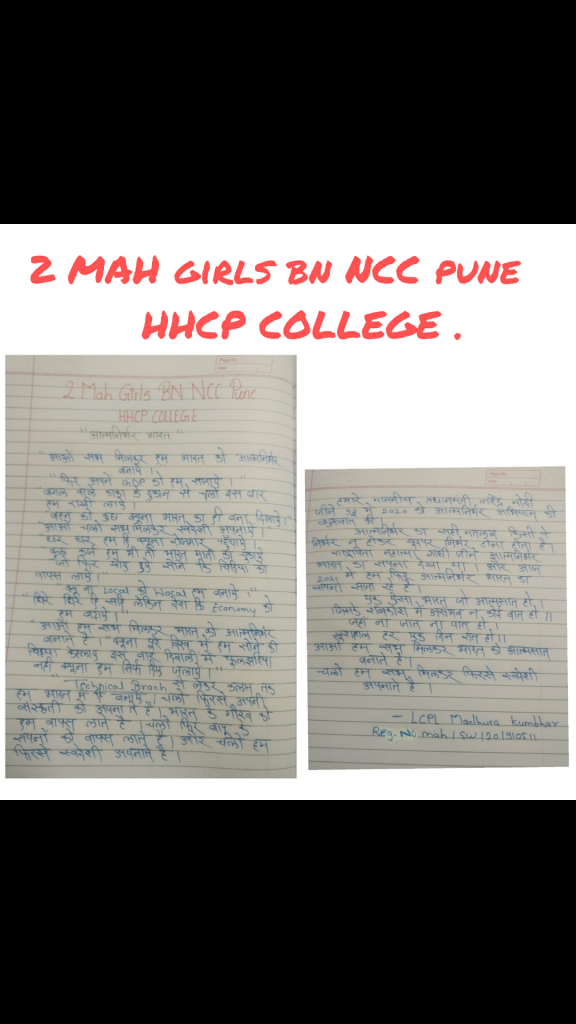 2 MAH GIRLS BN NCC PUNE
HHCP COLLEGE .
2 Mah Girls BN NCC Pune
HHCP COLLEGE
"आत्मनिर्भर भारत"
"आओ सब मिलकर हम भारत को आत्मनिर्भर
बनाये।।
"फिर अपने GDP को हम
वाले के दुकान से चलो इस बार
हम राखी लाये।
बहन को कुछ क्यूना भारत का ही बना दिलाये।"
"आओ चलो सब मिलकर स्वदेशी अपनाये।
घर घर हम है क्यूना रोजगार पहुँचाये।
कुछ कर्ज हम भी तो भारत माता के चुकाये
जो फिर याद हुये सोने कि चिड़िया को
वापस लाये।"
क्यू ना Local को Vocal हम बनाये।"
"धिरे धिरे हि सही लेकिन देश कि Economy को
हम बढ़ाये।
"आओ हम सब मिलकर भारत को आत्मनिर्भर
बनाते है। क्यूना पुरे विश्व में हम सोने की
चिड़िया इस बार दिवाली में फुलझड़िया
नही क्यूना हम सिर्फ दिए जलाये।"
"Technical से लेकर कलम तक
हम भारत में ही बनाये। चलो फिरसे अपनी
को अपनाते है। भारत के गौरव को
हम वापस लाते है। चलो फिर बापू के
सपनों को वापस लाते है। और चलो हम
फिरसे स्वदेशी अपनाते है।
हमारे माननीय प्रधानमंत्री नरेंद्र मोदी
जीने 2020 को आत्मनिर्भर अभियान की
शुरुआत की।
आत्मनिर्भर का सही मतलब किसी पे
निर्भर न होकर खुदपर निर्भर होना होता है।
राष्ट्रपिता महात्मा गांधी जीने आत्मनिर्भर
भारत का सपना देखा था। और आज
2021 में हम फिर आत्मनिर्भर भारत का
सपना रहे है।
भारत जो आत्मसात हो।
जिसके में असंभव न कोई बात हो।।
जहाँ ना जात ना पात हो।।
खुशहाल हर दिन रात हो।।
आओ हम सब मिलकर भारत को आत्मसात
बनाते है।
चलो हम सब मिलकर फिरसे स्वदेशी
अपनाते है।
- LCPL Madhura Kumbhar
Reg. No. mah/SW/20/910511